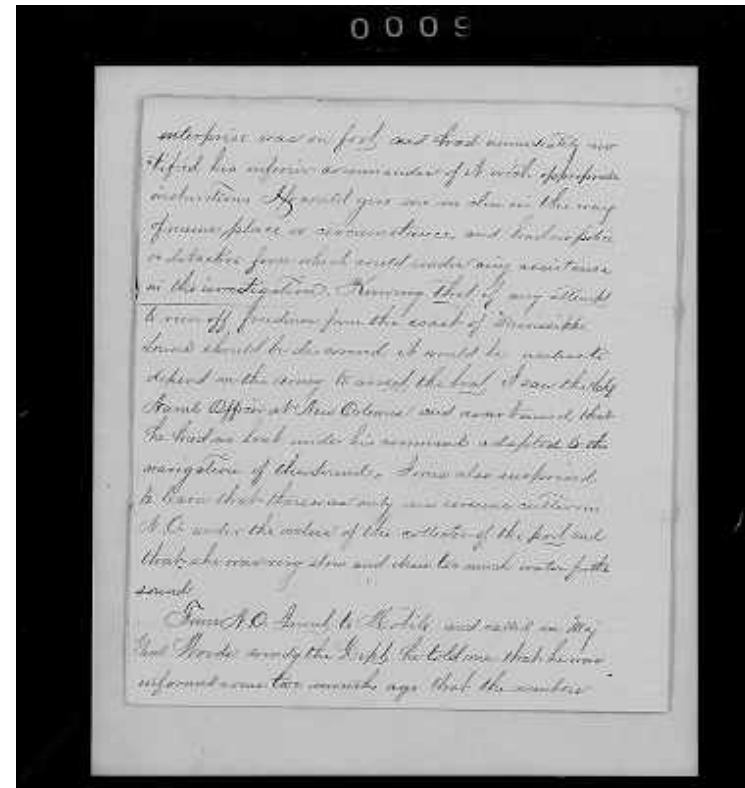 0009
enterprise was on foot and had immediately no
tified his inferior commander of it with appropriate
instructions. He could give me no clue in the way
of name place or circumstance, and had no police
or detective force which could render any assistance
in the investigation. Knowing that if any attempt
to run off freedmen from the coast of Mississippi
Sound should be discovered it would be useless to
depend on the army to arrest the boat I saw the Chf
Naval Officer at New Orleans and ascertained that
he had no boat under his command adapted to the
navigation of the Sound. I was also surprised
to learn that there was only one revenue cutter in
N.O. under the orders of the collector of the port and
that she was very slow and drew too much water for the
sound
From N.O. I went to Mobile and called on Maj
Genl Woods comdg the Dept. he told me that he was
informed some two months ago that the